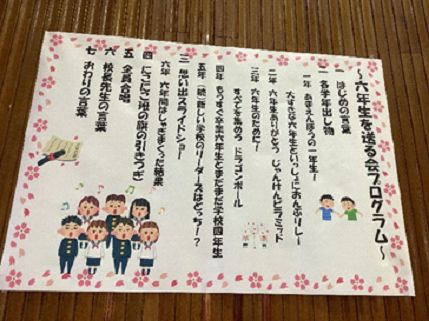 ～六年生を送る会プログラム～
一 はじめの言葉
二 各学年出し物
一年 あまえんぼうの一年生！
大すきな六年生といっしょにおんぶりレー
二年 六年生ありがとう じゃんけんピラミッド
三年 六年生のために！
すべてを集めろ ドラゴンボール
四年 もうすぐ卒業六年生とまだまだ学校四年生
五年 続・新しい学校のリーダーズはどっち！？
三 思い出スライドショー
六年 六年間はしゃぎまくった結果
四 にこにこ班の旗の引きつぎ
五 全員合唱
六 校長先生の言葉
七 おわりの言葉